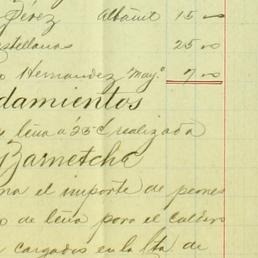 Pérez Albañil 15 00
astellanos 25 00
o Hernandez May.º 7 00
damientos
y leña a 25¢ realizada
Barnetche
ma el importe de peones
o de leña para el caldero
n cargados en la Hda de